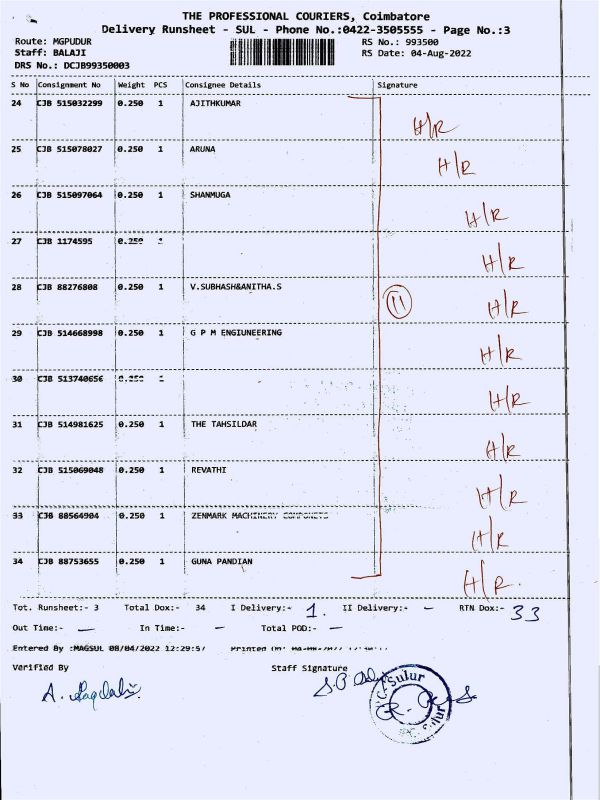 THE PROFESSIONAL COURIERS, Coimbatore
Delivery Runsheet - SUL - Phone No.:0422-3505555 - Page No.:3
Route: MGPUDUR RS No.: 993500
Staff: BALAJI RS Date: 04-Aug-2022
DRS No.: DCJB99350003
S No Consignment No Weight PCS Consignee Details Signature
24 CJB 515032299 0.250 1 AJITHKUMAR H/R
25 CJB 515078027 0.250 1 ARUNA H/R
26 CJB 515097064 0.250 1 SHANMUGA H/R
27 CJB 1174595 0.250 1 H/R
28 CJB 88276808 0.250 1 V.SUBHASH&ANITHA.S 11 H/R
29 CJB 514668998 0.250 1 G P M ENGIUNEERING H/R
30 CJB 513740656 0.250 1 H/R
31 CJB 514981625 0.250 1 THE TAHSILDAR H/R
32 CJB 515069048 0.250 1 REVATHI H/R
33 CJB 88564904 0.250 1 ZENMARK MACHINERY COMPONETS H/R
34 CJB 88753655 0.250 1 GUNA PANDIAN H/R.
Tot. Runsheet:- 3 Total Dox:- 34 I Delivery:- 1. II Delivery:- - RTN Dox:- 33
Out Time:- - In Time:- - Total POD:- -
Entered By :MAGSUL 08/04/2022 12:29:57 Printed On:
Verified By Staff Signature
A. Sulur
Sulur